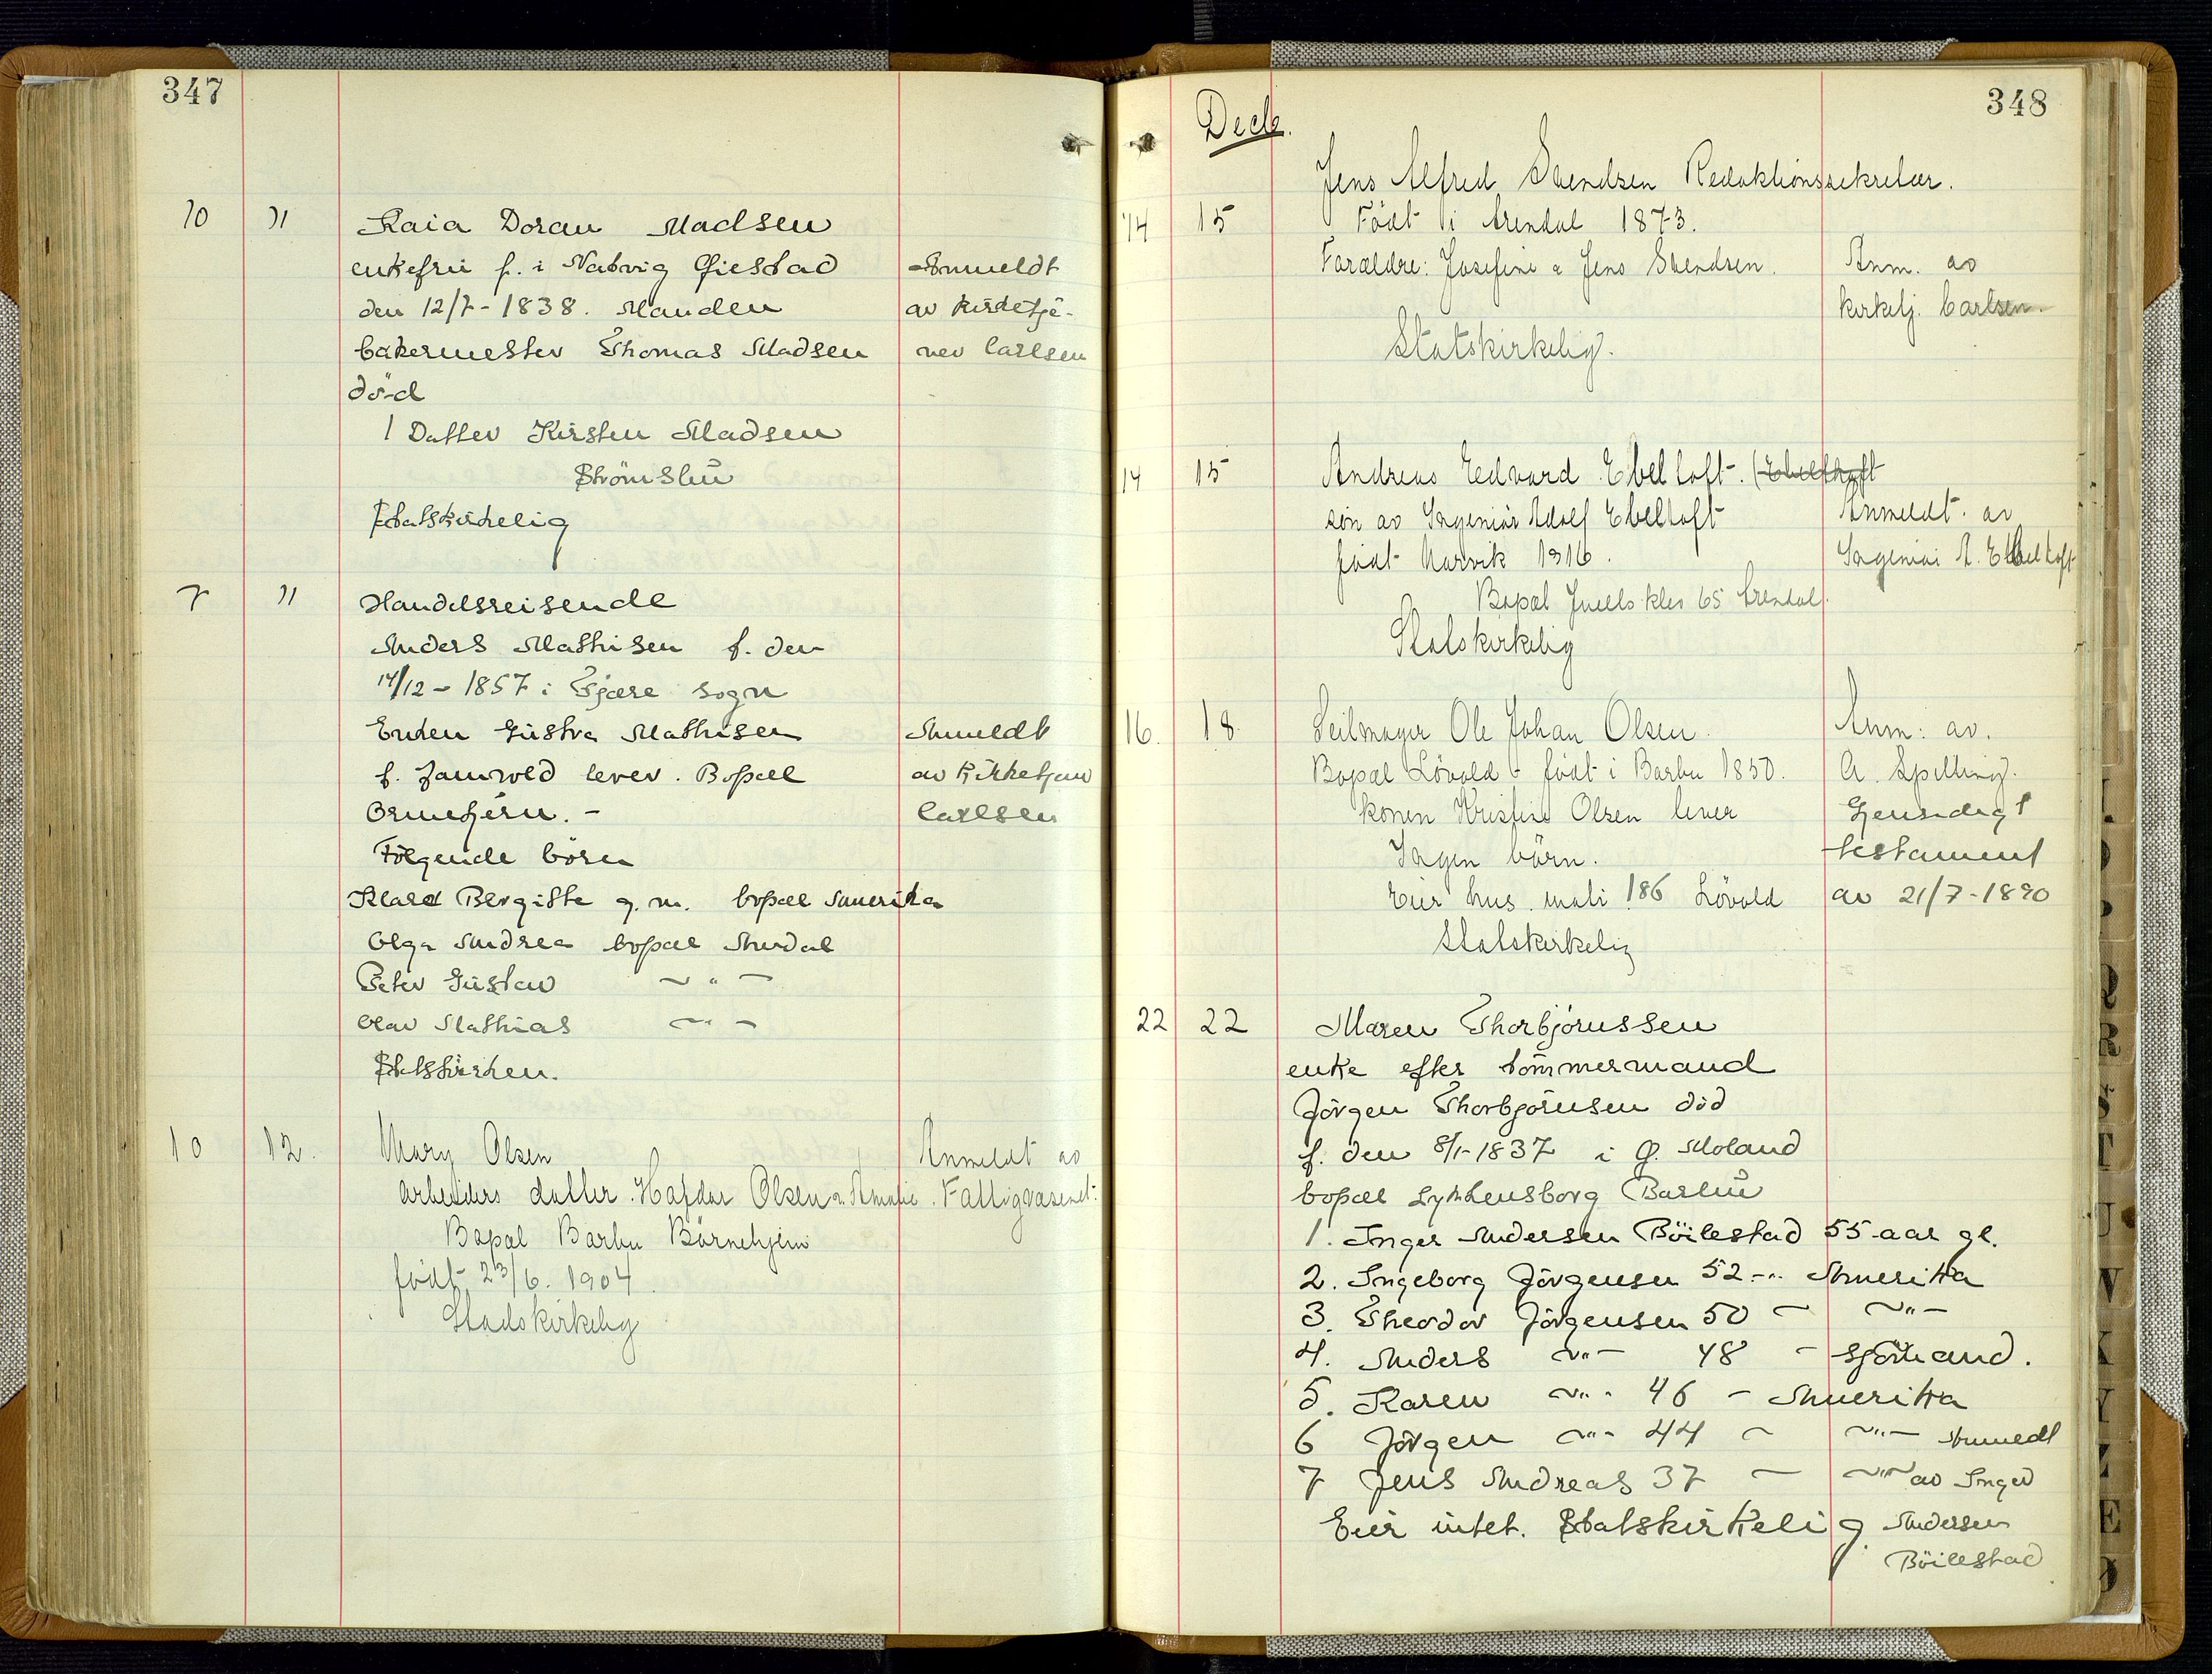 347
10 11 Kaia Doran Madsen
enkefru f. i Natvig Øiestad Anmeldt
den 12/7-1838. Manden av kirketje-
bakermester Thomas Madsen ner Carlsen
död
1 Datter Kirsten Madsen
Strömsbu
Statskirkelig
7 11 Handelsreisende
Anders Mathisen f. den
14/12-1857 i Fjære sogn
Enken Gustva Mathisen Anmeldt
f. lever. Bopæl av Kirketjener
Carlsen
Følgende börn
Klara Bergitte g. m. bopæl Amerika
Olga Andrea bopæl Arendal
Peter Gustav ~ " ~
Olav Mathias ~ " ~
Statskirken.
10 12. Mary Olsen Anmeldt av
arbeiders datter. Hafdar Olsen a. Amalie. Fattigvæsenet.
Bopæl Barbu Börnehjem
födt 23/6. 1904
Stadskirkelig
348
Decb.
Jens Alfred Svendsen Redaktionssekretær.
14 15 Födt i Arendal 1873.
Foræeldre: Josefine & Jens Svendsen. Anm. av
kirketj. Carlsen.
Statskirkelig.
14 15 Andreas Edvard Ebeltoft. (Ebelthoft
sön av Ingeniör Adolf Ebeltoft Anmeldt. av
födt Narvik 1916. Ingeniör A. Ebeltoft
Bopæl 65 Arendal.
Statskirkelig
16. 18 Seilmager Ole Johan Olsen. Anm: av.
Bopæl Lövold - födt i Barbu 1850. A. Spilling.
konen Kristine Olsen lever Gjensidigt
Ingen börn. testament
Eier hus. matr. 186 Lövold av 21/7-1890
Statskirkelig
22 22 Maren Thorbjörnssen
enke efter tömmermand
Jörgen Thorbjörnsen död
f. den 8/1-1837 i Ø. Moland
bopæl Lykkensborg Barbu
1. Inger Andersen Böilestad 55-aar gl.
2. Ingeborg Jörgensen 52-". Amerika
3. Theodor Jörgensen 50 ~ ~"~
4. Anders ~"~ 48 - sjömand.
5. Karen ~"~ 46 - Amerika
6 Jörgen ~"~ 44 ~ ~"~ Anmeldt
7 Jens Andreas 37 ~ ~"~ av Inger
Eier intet. Statskirkelig Andersen
Böilestad